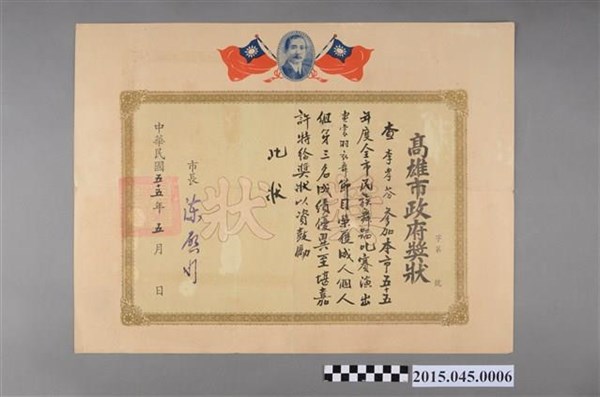 高雄市政府獎狀
字第 號
查李彩 參加本市五十五
年度全市民族舞蹈比賽演出
霓裳羽衣舞節目榮獲成人個人
組第三名成績優異至堪嘉
許特給獎狀以資鼓勵
此狀
市長 陳啓川
中華民國五十五年 五月 日
獎狀
2015.045.0006